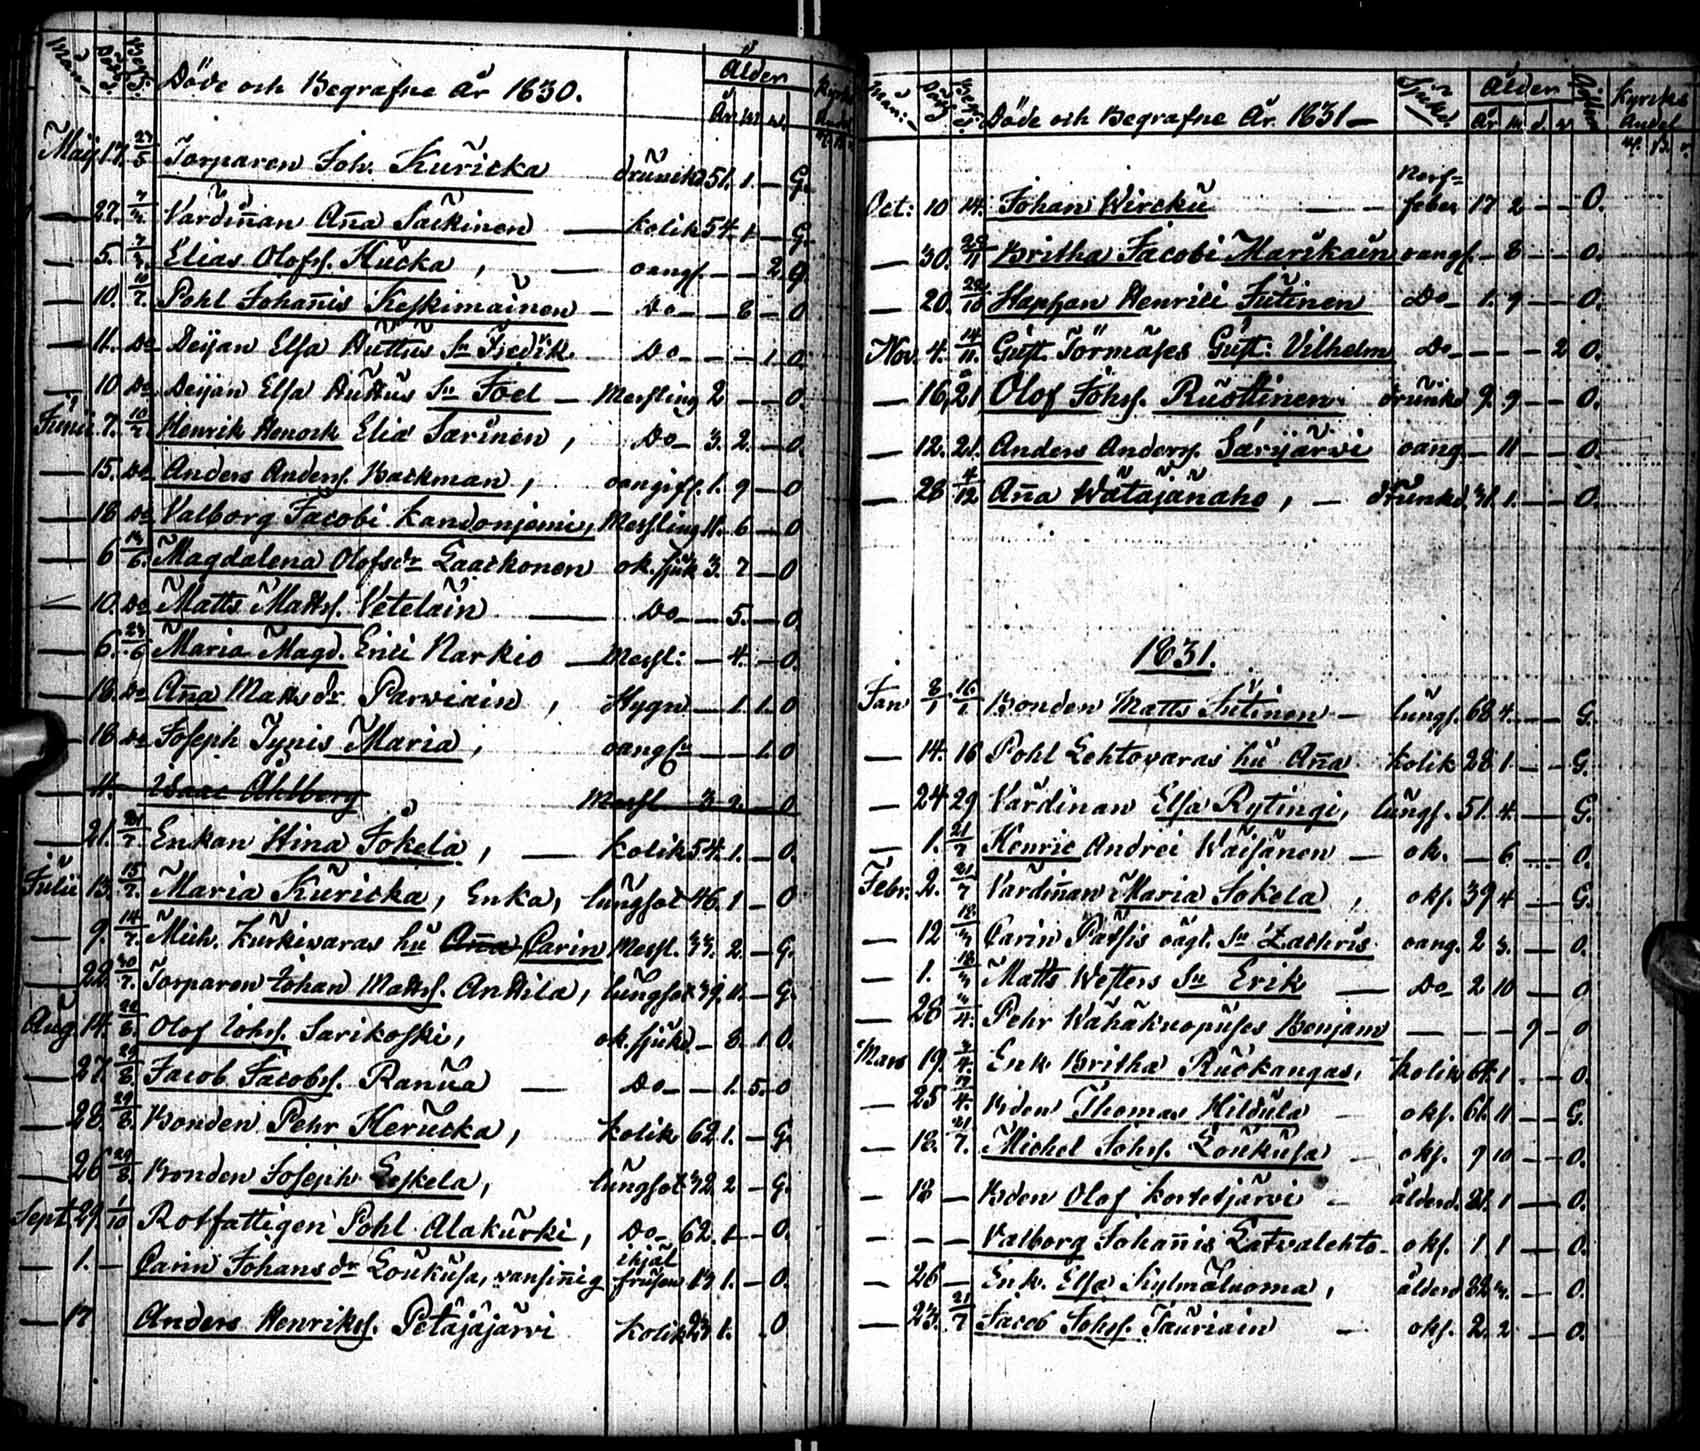 Mån: Död. Begr. Döde och Begrafne År 1830. Ålder Kyrko Andel
År. m. d.
Maij. 17. 27/5 Torparen Joh. Kuricka drunkn 51. 1. — G.
— 27. Värdiñan Aña Säckinen — Kolik 54. 1. — G.
— 5. Elias Olofs. Kucka, — oangf. — — 2. G.
— 10. 10/7. Pohl Johañis Keskimainen — Do — — 8 — O
— 11. Do Deijan Elsa Huttus Sn Fredrik — Do — — — 1. O.
— 10. Do Deijan Elsa Huttus Sn Joel — Messling 2 — — O.
Junii 7. Henrik Henock Eliæ Särinen, Do — 3. 2. — O.
— 15. Do Anders Anders. Backman, oangif. 1. 9 — O
— 18 Do Valborg Jacobi Kandonjemi, Messling 11. 6 — O
— 6 Magdalena Olofsdr Laackonen ok. sjuk 3. 7 — O
— 10. Do Matts Matts. Veteläin — Do — — 5. — O.
— 6. 23/6 Maria Magd. Erici Narkio — Messl: — 4. — O.
— 18. Do Aña Mattsdr Parviain, Hygn — 1. 1. O
— 18. Do Joseph Tynis Maria, oangf — — 1. O
— 11. Isaac Ahlberg Messl 3 2. — O
— 21. 21/7 Enkan Stina Jokela, — Kolik 54. 1. — O.
Julii 13. 15/7. Maria Kuricka, Enka, lungsot 46. 1 — O
— 9. 14/7. Mich. Kurkivaras hu Aña Carin Messl. 33. 2. — G.
— 22. 30/7. Torparen Johan Matts. Anttila, lungsot 39. 11. — G.
Aug. 14. Olof Johs. Sarikoski, ok. sjukd — 8. 1 O.
— 27. 29/8. Jacob Jacobs. Ranua — Do — — 1. 5. O
— 28. 29/8. Bonden Pehr Kerucka, Kolik 62 1. — G.
— 26 29/8. Bonden Joseph Leskela, lungsot 32. 2 — G.
Sept. 29. 1/10. Rotfattigen Pohl Alakurki, Do — 62. 1 — O.
— 1. — Carin Johansdr Loukusa, vansiñig ihjäl frusen 19 1. — O.
— 17 Anders Henriks. Petäjäjärvi Kolik 23 1. . O
Mån: Död. Begr. Döde och Begrafne År 1831 — Sjukd. Ålder Kyrko Andel
År m. d.
Oct: 10 14. Johan Wircku — — Nerf= feber 17 2 — — O.
— 30. Britha Jacobi Marikain oangf. — 8 — — O.
— 20. Henrici Jutinen Do — 1. 9 — — O.
Nov. 4. 14/11. Gust. Törmäses Gust: Vilhelm Do — — — — 2 O.
— 16. 21 Olof Johs. Ruottinen drunkn 9. 9 — — O.
— 12. 21. Anders Anders. Särijärvi oang. — 11 — — O.
— 28 4/12 Aña Wätäjänaho, — drunkn. 31. 1. — — O.
1831.
Jan 8/1 16/1 Bonden Matts Jutinen — lungs. 68. 4. — — G.
— 14. 16 Pohl Lehtovaras hu Aña Kolik 28 1. — — G.
— 24 29 Värdinan Elsa Rytingi, lungs. 51. 4. — — G.
— 1. 21/7 Henric Andrei Wäisänen — ok. — 6 — — O.
Febr. 2. 21/7 Värdiñan Maria Jokela, oks. 39 4 — — G.
— 12 Carin Pätsis oägt. Sn Zachris oang. 2 3. — — O.
— 1. Matts Westers Sn Erik — Do — 2 10 — — O
— 26 Pehr Wähäkuopuses Benjam — — — 9 — O
Mars 19. Enk. Britha Ruokangas, Kolik 64. 1 — O.
— 25 Bden Thomas Hildula — oks. 61. 11 — — G.
— 18. 21/7. Michel Johs. Loukusa — oks. 9 10 — — O.
— 18 — Bden Olof Kortetjärvi — ålderd. 81. 1 — — O.
— — — Valborg Johañis Latvalehto — oks. 1. 1 — — O.
— 26 — Enk. Elsa Kylmäluoma, ålderd 82 — — O.
— 23. 21/7 Jacob Johs. Tauriain — oks. 2. 2 — — O.